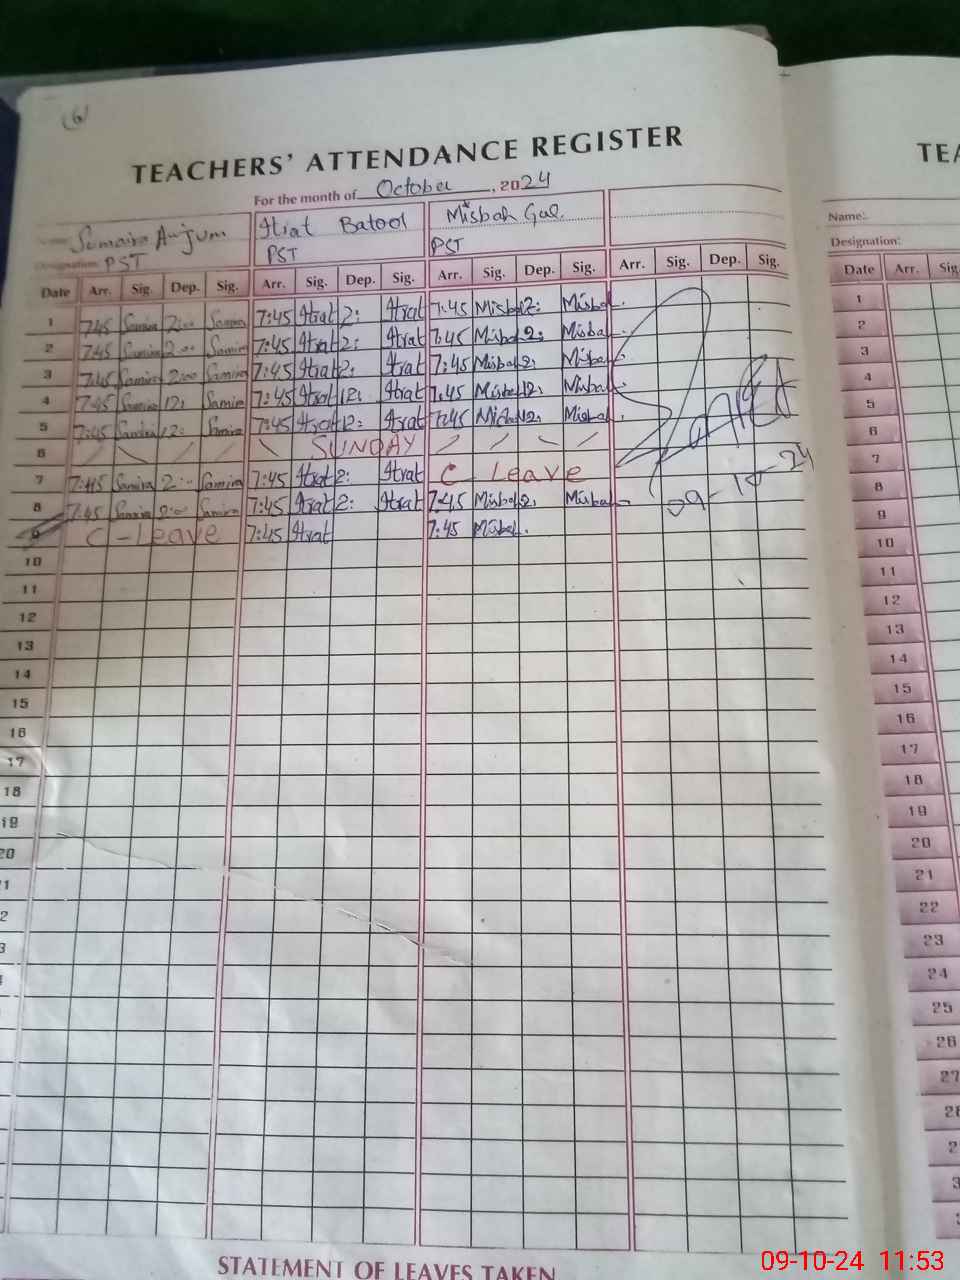 (6)
TEACHERS' ATTENDANCE REGISTER
For the month of October, 2024
Name: Sumaira Anjum Itrat Batool Misbah Gul
Designation: PST PST PST
Date Arr. Sig. Dep. Sig. Arr. Sig. Dep. Sig. Arr. Sig. Dep. Sig. Arr. Sig. Dep. Sig.
1 7:45 Samira 2:00 Samira 7:45 Itrat 2: Itrat 7:45 Misbah 2: Misbah
2 7:45 Samira 2:00 Samira 7:45 Itrat 2: Itrat 7:45 Misbah 2: Misbah
3 7:45 Samira 2:00 Samira 7:45 Itrat 2: Itrat 7:45 Misbah 2: Misbah
4 7:45 Samira 12: Samira 7:45 Itrat 12: Itrat 7:45 Misbah 12: Misbah
5 7:45 Samira 12: Samira 7:45 Itrat 12: Itrat 7:45 Misbah 12: Misbah
6 SUNDAY
7 7:45 Samira 2:00 Samira 7:45 Itrat 2: Itrat C-Leave
8 7:45 Samira 2:00 Samira 7:45 Itrat 2: Itrat 7:45 Misbah 2: Misbah
09-10-24
9 C-Leave 7:45 Itrat 7:45 Misbah
10
11
12
13
14
15
16
17
18
19
20
1
2
3
STATEMENT OF LEAVES TAKEN
TEA
Name:
Designation:
Date Arr. Sig
1
2
3
4
5
6
7
8
9
10
11
12
13
14
15
16
17
18
19
20
21
22
23
24
25
26
27
2
3
09-10-24 11:53